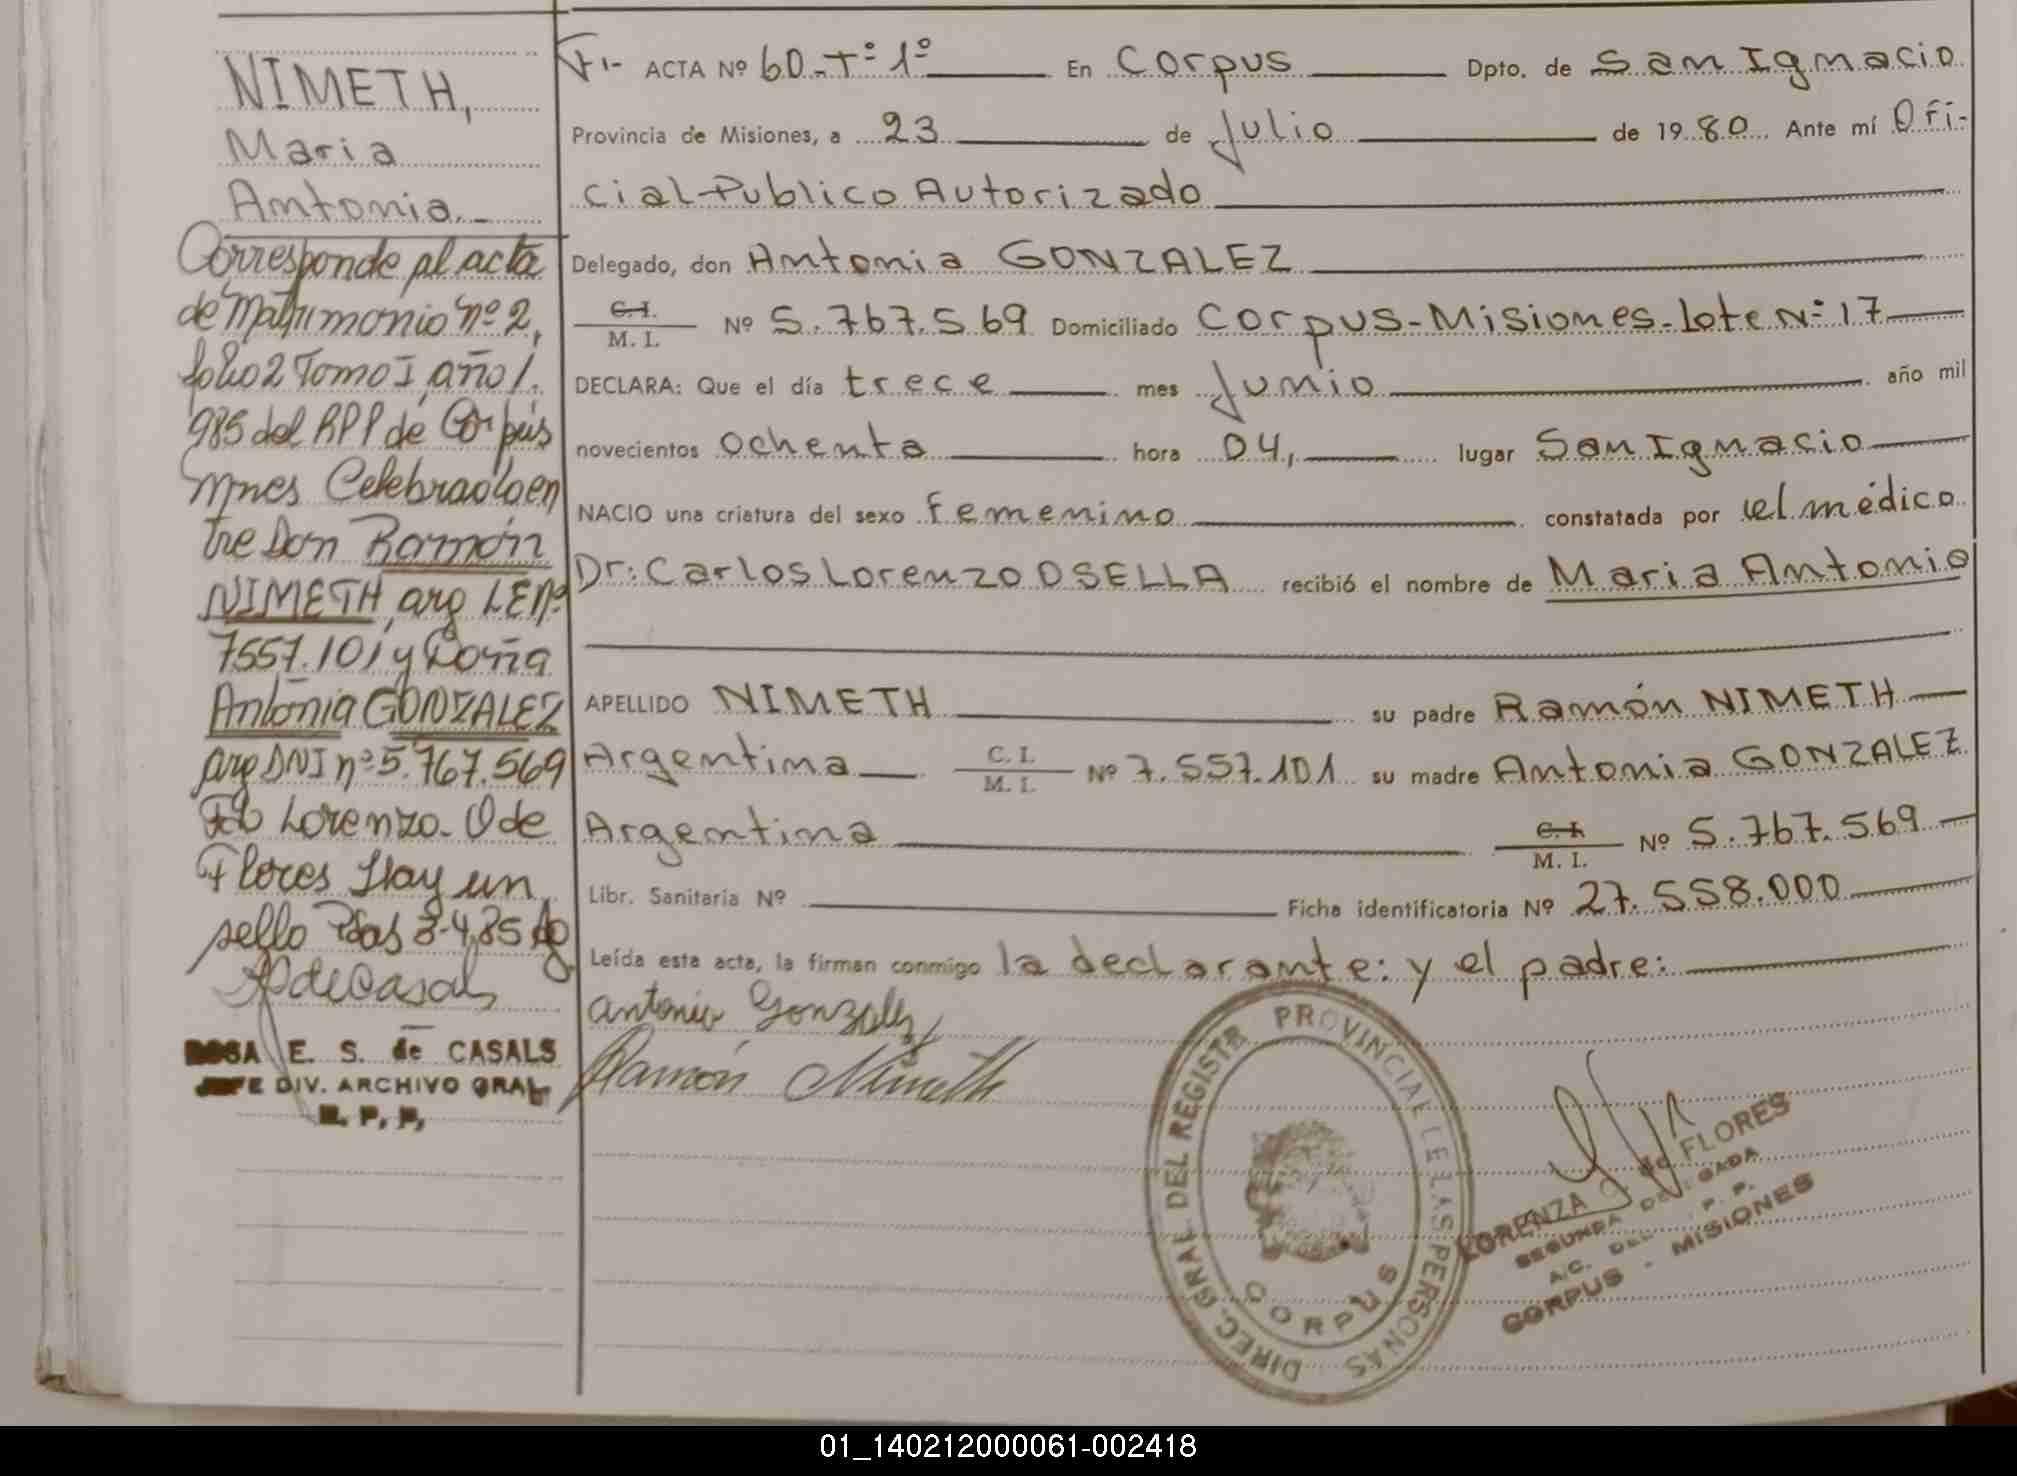 NIMETH,
Maria
Antonia._
Corresponde al acta
de Matrimonio nº 2,
folio 2 Tomo I, año 1.
985 del RPP de Corpus
Mnes Celebrado en
tre Don Ramón
NIMETH, arg LE nº
7557.101 y Doña
Antonia GONZALEZ
arg DNI nº 5.767.569
Fdo Lorenzo. O de
Flores Hay un
sello Psas 3-4,85
de Casals
ROSA E. S. de CASALS
JEFE DIV. ARCHIVO GRAL.
R. P. P.
F 1- ACTA Nº 60.-Tº 1º En Corpus Dpto. de San Ignacio
Provincia de Misiones, a 23 de Julio de 1980 Ante mí Ofi-
cial-Publico Autorizado
Delegado, don Antonia GONZALEZ
C. I. / M. I. Nº 5.767.569 Domiciliado Corpus-Misiones-Lote Nº 17
DECLARA: Que el día trece mes Junio año mil
novecientos ochenta hora 04, lugar San Ignacio
NACIO una criatura del sexo femenino constatada por el médico
Dr: Carlos Lorenzo OSELLA recibió el nombre de Maria Antonia
APELLIDO NIMETH su padre Ramón NIMETH
Argentina C. I. / M. I. Nº 7.557.101 su madre Antonia GONZALEZ
Argentina C. I. / M. I. Nº 5.767.569
Libr. Sanitaria Nº Ficha identificatoria Nº 27.558.000
Leída esta acta, la firman conmigo la declarante: y el padre:
antonia Gonzalez
Ramón Nimeth
DIREC. GRAL DEL REGISTR PROVINCIAL DE LAS PERSONAS
CORPUS
LORENZA O. de FLORES
SEGUNDA DELEGADA
A/C. DEL R. P. P.
CORPUS - MISIONES
01_140212000061-002418